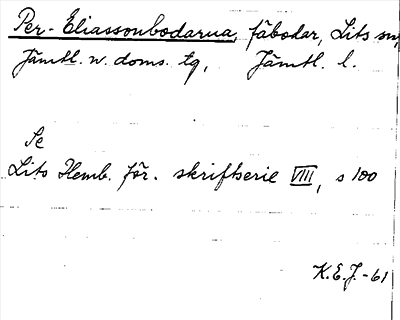 Per-Eliassonbodarna, fäbodar, Lits sn,
Jämtl. w. doms. tg, Jämtl. l.
Se
Lits Hemb. för. skriftserie VIII, s 100
K.E.J.-61